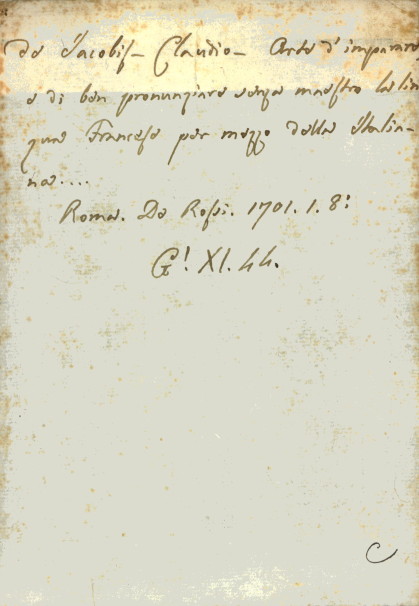 De Iacobis - Claudio - Arte d'imparare
e di ben pronunziare senza maestro la lin
gua Francese per mezzo della Italia-
na....
Roma. De Rossi. 1701. 1. 8:
G! XI. 44.
C